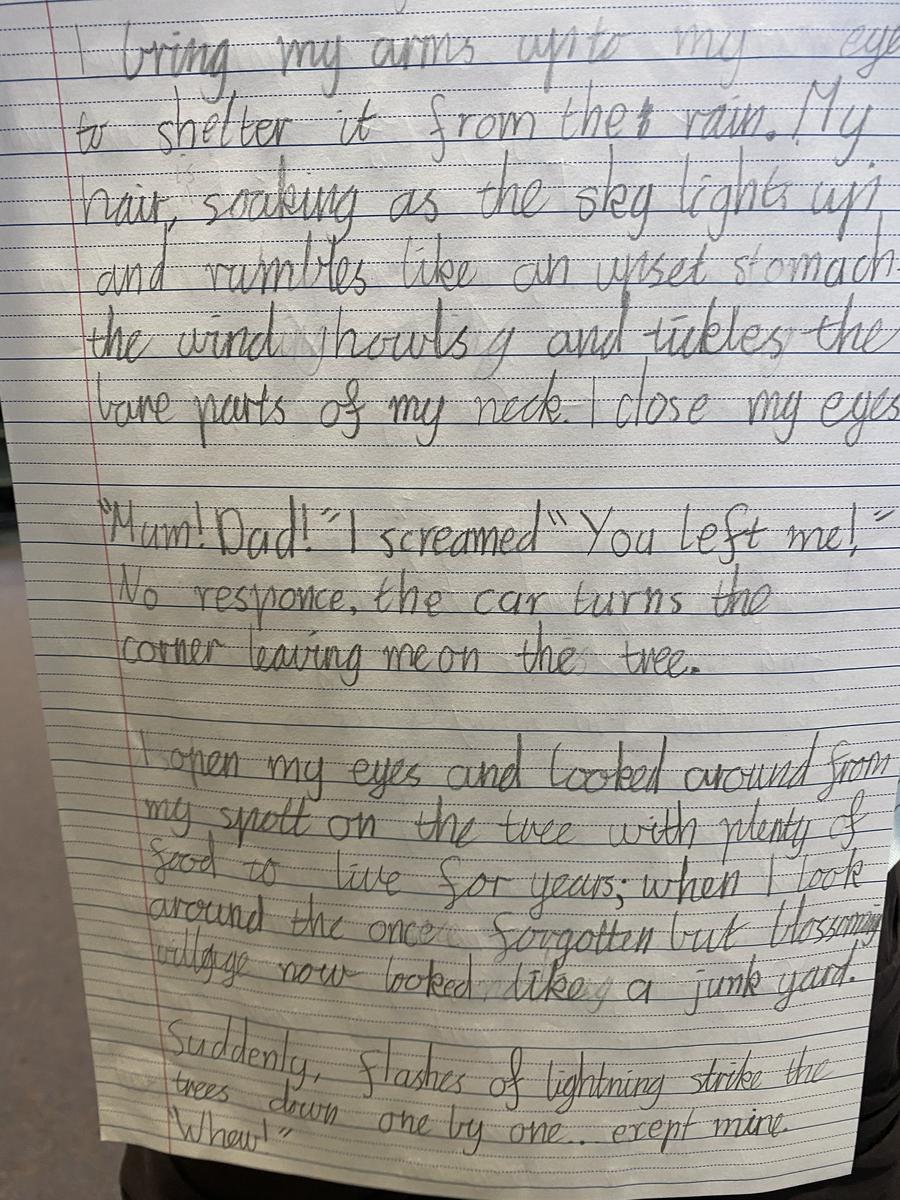 I bring my arms upto my eye
to shelter it from the rain. My
hair, soaking as the sky lights up,
and rumbles like an upset stomach.
the wind howls and tickles the
bare parts of my neck. I close my eyes
"Mum! Dad!" I screamed "You left me!"
No responce, the car turns the
corner leaving me on the tree.
I open my eyes and looked around from
my spott on the tree with plenty of
food to live for years; when I look
around the once forgotten but blossoming
village now looked like a junk yard.
Suddenly, flashes of lightning strike the
trees down one by one.. exept mine.
"Whew!"